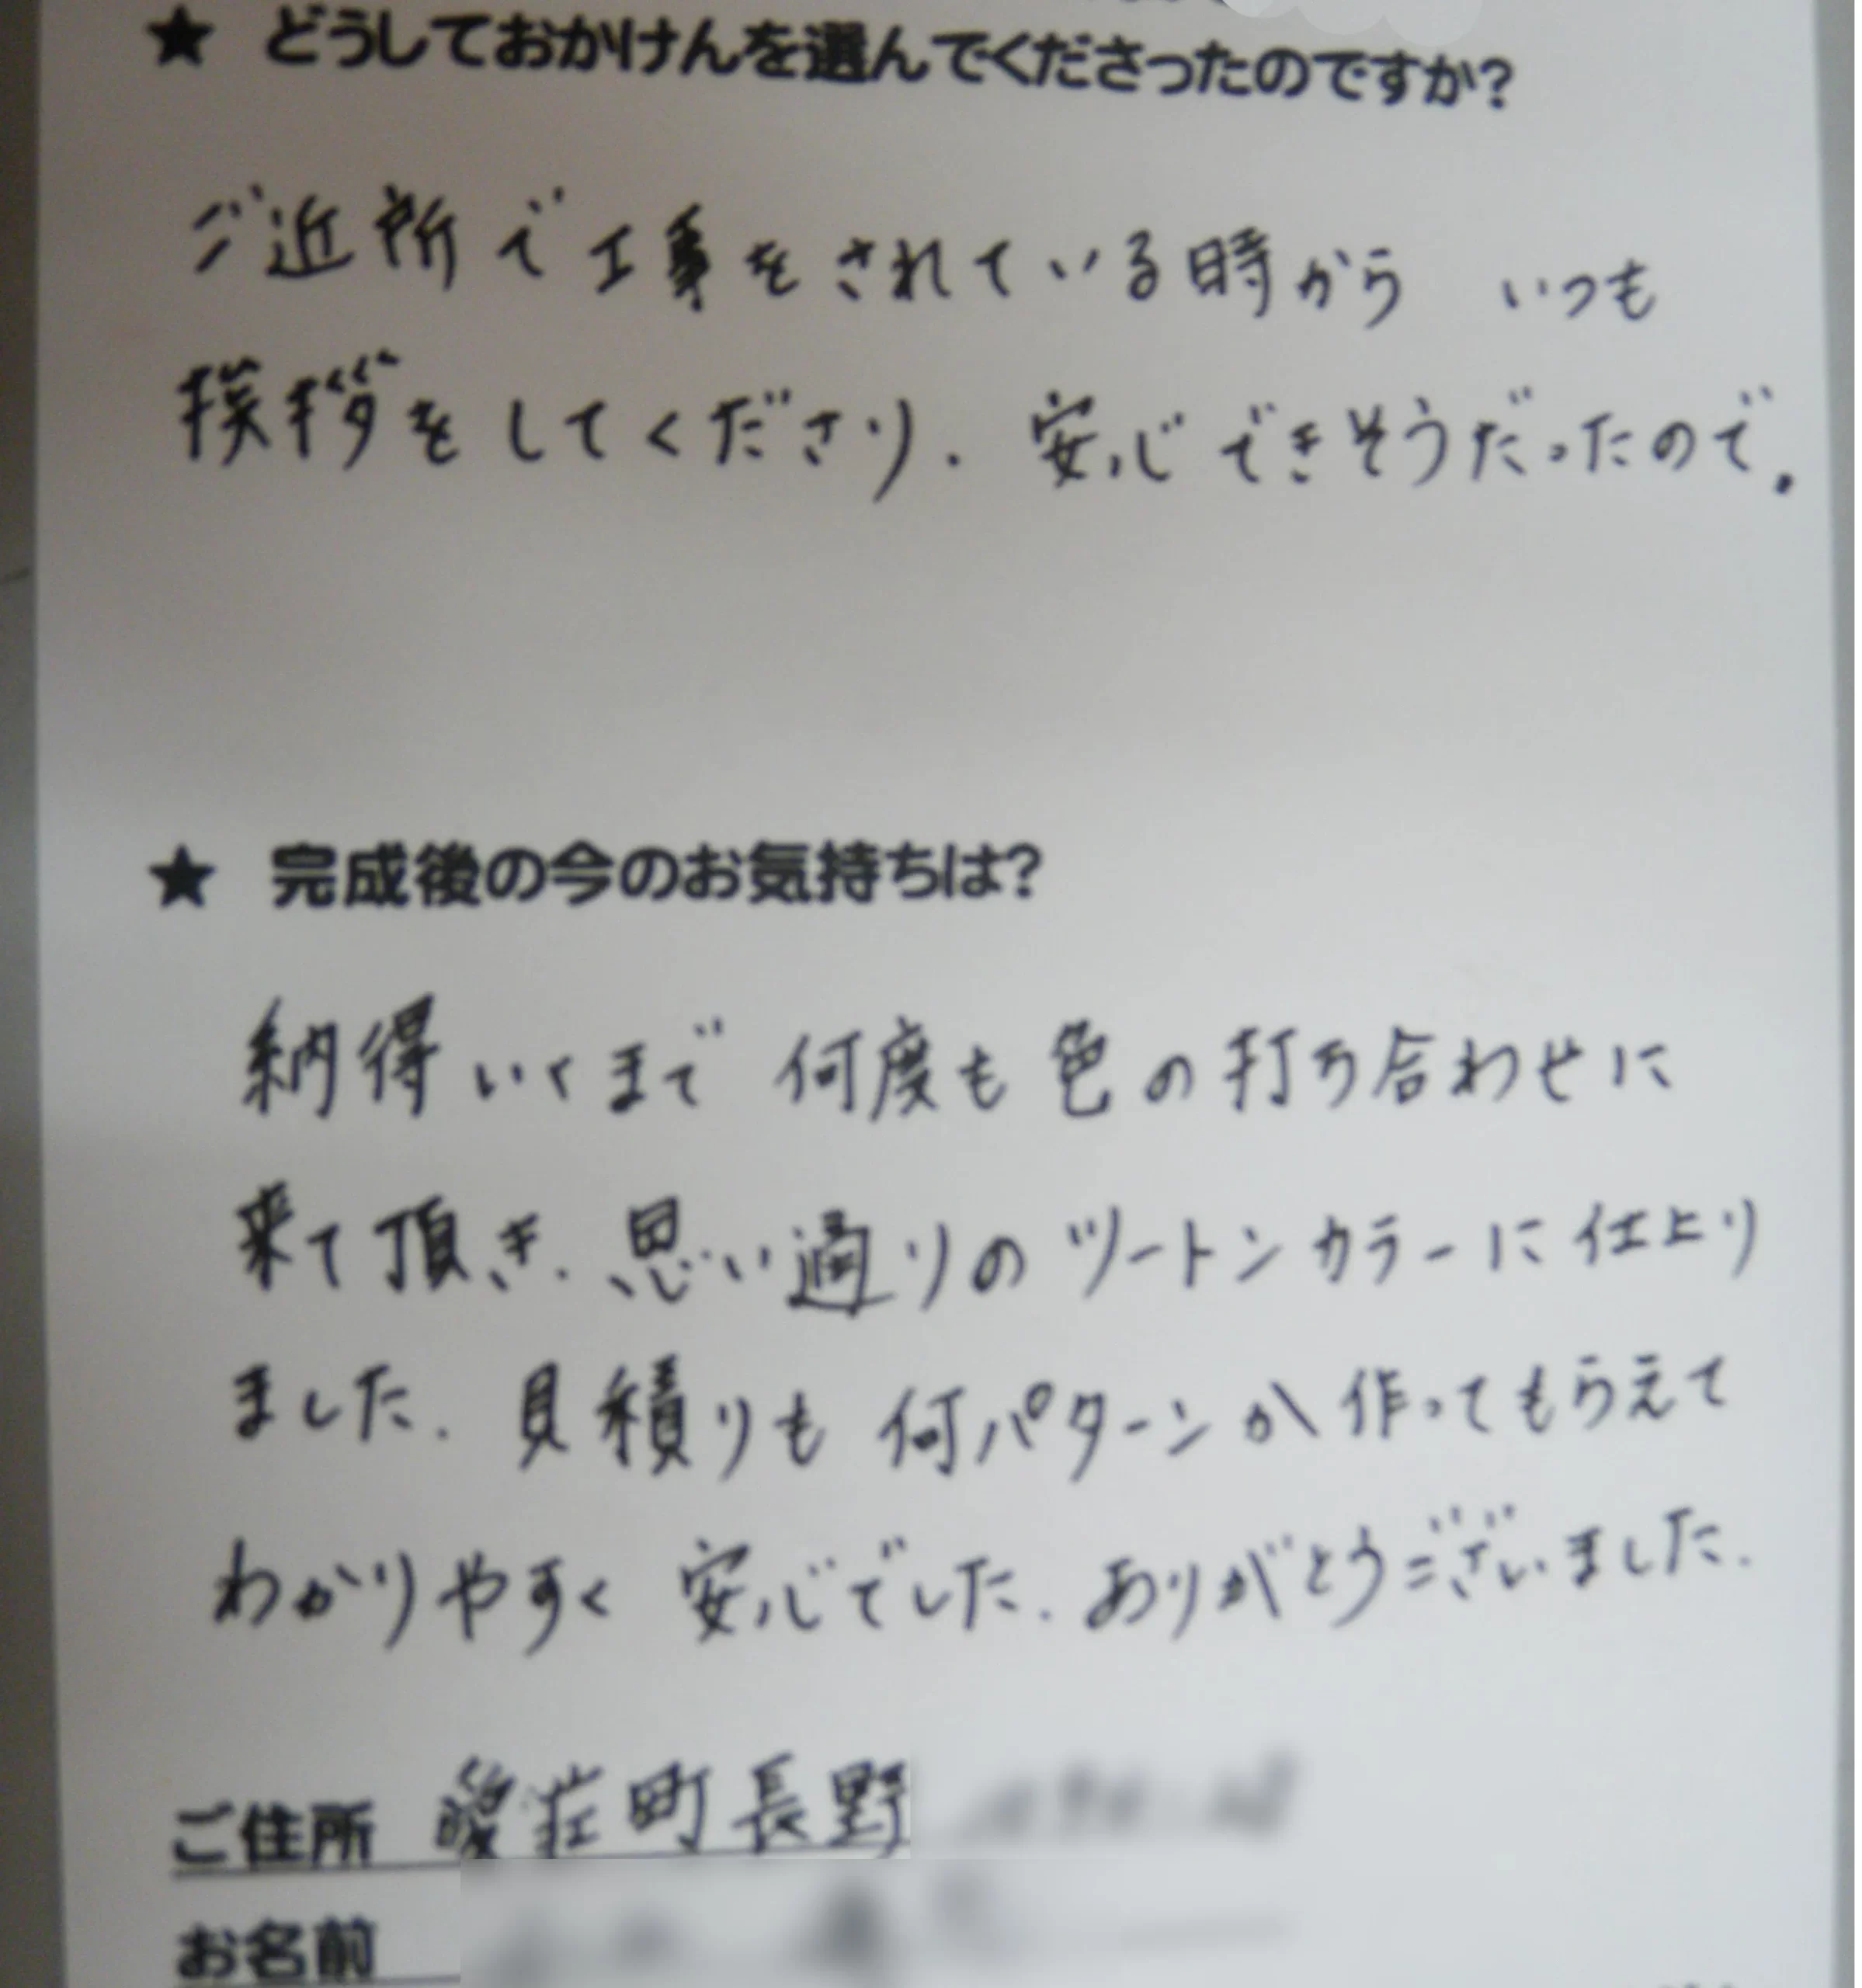 ★ どうしておかけんを選んでくださったのですか?
ご近所で工事をされている時から いつも
挨拶をしてくださり、安心できそうだったので。
★ 完成後の今のお気持ちは?
納得いくまで 何度も色の打ち合わせに
来て頂き、思い通りのツートンカラーに仕上り
ました。見積りも何パターンか作ってもらえて
わかりやすく 安心でした。ありがとうございました。
ご住所 綾荘町長野
お名前